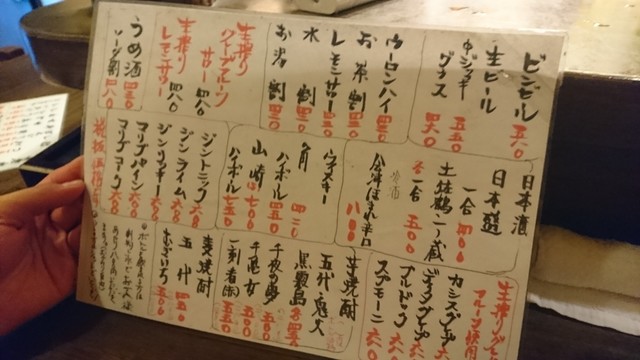 ビンビール 五八〇
生ビール
中ジョッキ 五五〇
グラス 四六〇
ウーロンハイ 四三〇
お茶割 四三〇
レモンサワー 四三〇
水割 四三〇
お湯割 四三〇
生搾り
グレープフルーツ
サワー 四八〇
生搾り
レモンサワー 四八〇
うめ酒 四三〇
ソーダ割 四八〇
日本酒
日本醸
一合 四〇〇
土佐鶴
一合 五〇〇
会津ほまれ辛口
八〇〇
ウヰスキー
角 四二〇
ハイボール 四五〇
山崎 七〇〇
ハイボール 七五〇
ジントニック 六八〇
ジンライム 六八〇
ジンリッキー 六八〇
マリブパイン 六八〇
マリブコーク 六八〇
生搾り
フルーツ使用
カシスグレープ 六八〇
ディタグレープ 六八〇
ブルドック 六八〇
スプモーニ 六八〇
芋焼酎
五代
鬼火
黒霧島
千夜の夢 五〇〇
千亀女 五〇〇
一刻者 五五〇
麦焼酎
五代 四五〇
むぎいち 五〇〇